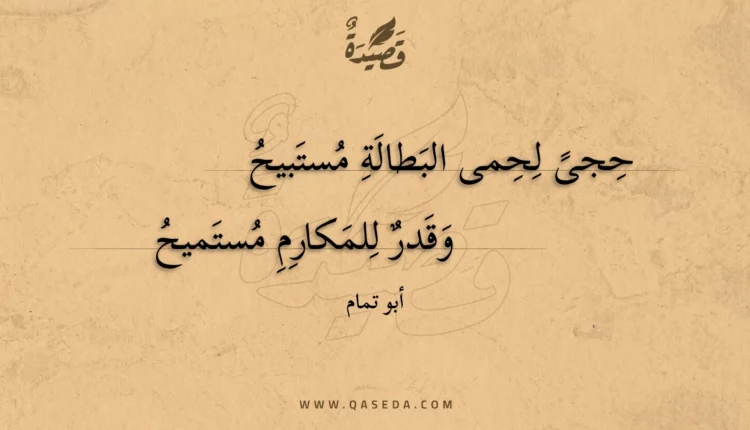 قَصِيْدَةٌ
حِجىً لِحِمى البَطالَةِ مُستَبيحُ
وَقَدرٌ لِلمَكارِمِ مُستَميحُ
أبو تمام
WWW.QASEDA.COM